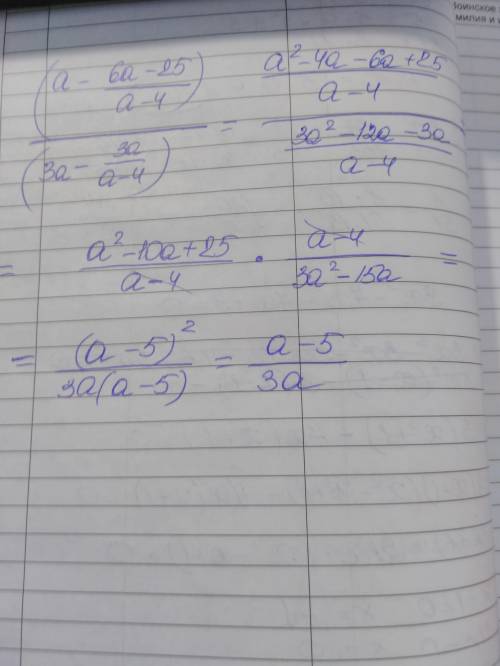 Воинское
милия и и
(a - (6a - 25)/(a - 4)) / (3a - 3a/(a - 4)) = ((a² - 4a - 6a + 25)/(a - 4)) / ((3a² - 12a - 3a)/(a - 4))
= (a² - 10a + 25)/(a - 4) · (a - 4)/(3a² - 15a) =
= (a - 5)²/(3a(a - 5)) = (a - 5)/(3a)